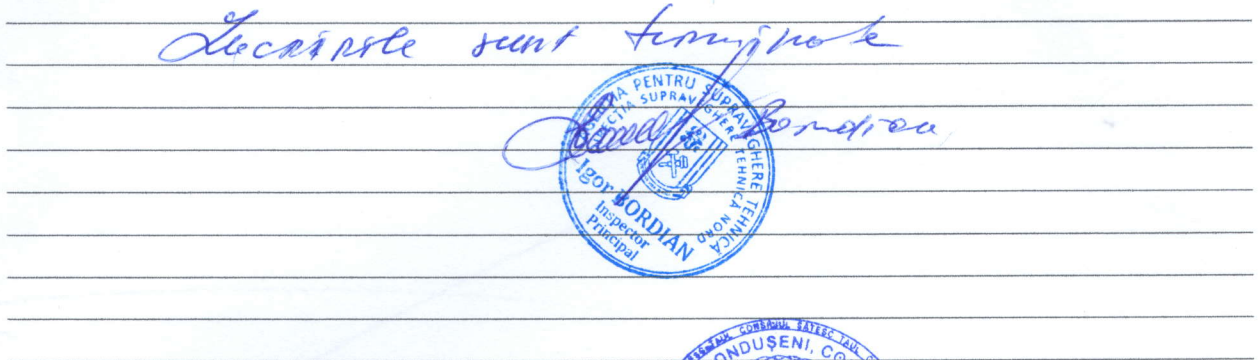 Lucrările sunt terminate
AGENȚIA PENTRU SUPRAVEGHERE TEHNICĂ
DIRECȚIA SUPRAVEGHERE TEHNICĂ NORD
Bordian
Igor BORDIAN
Inspector
Principal
CONSILIUL SĂTESC TAUL
ONDUȘENI, CO